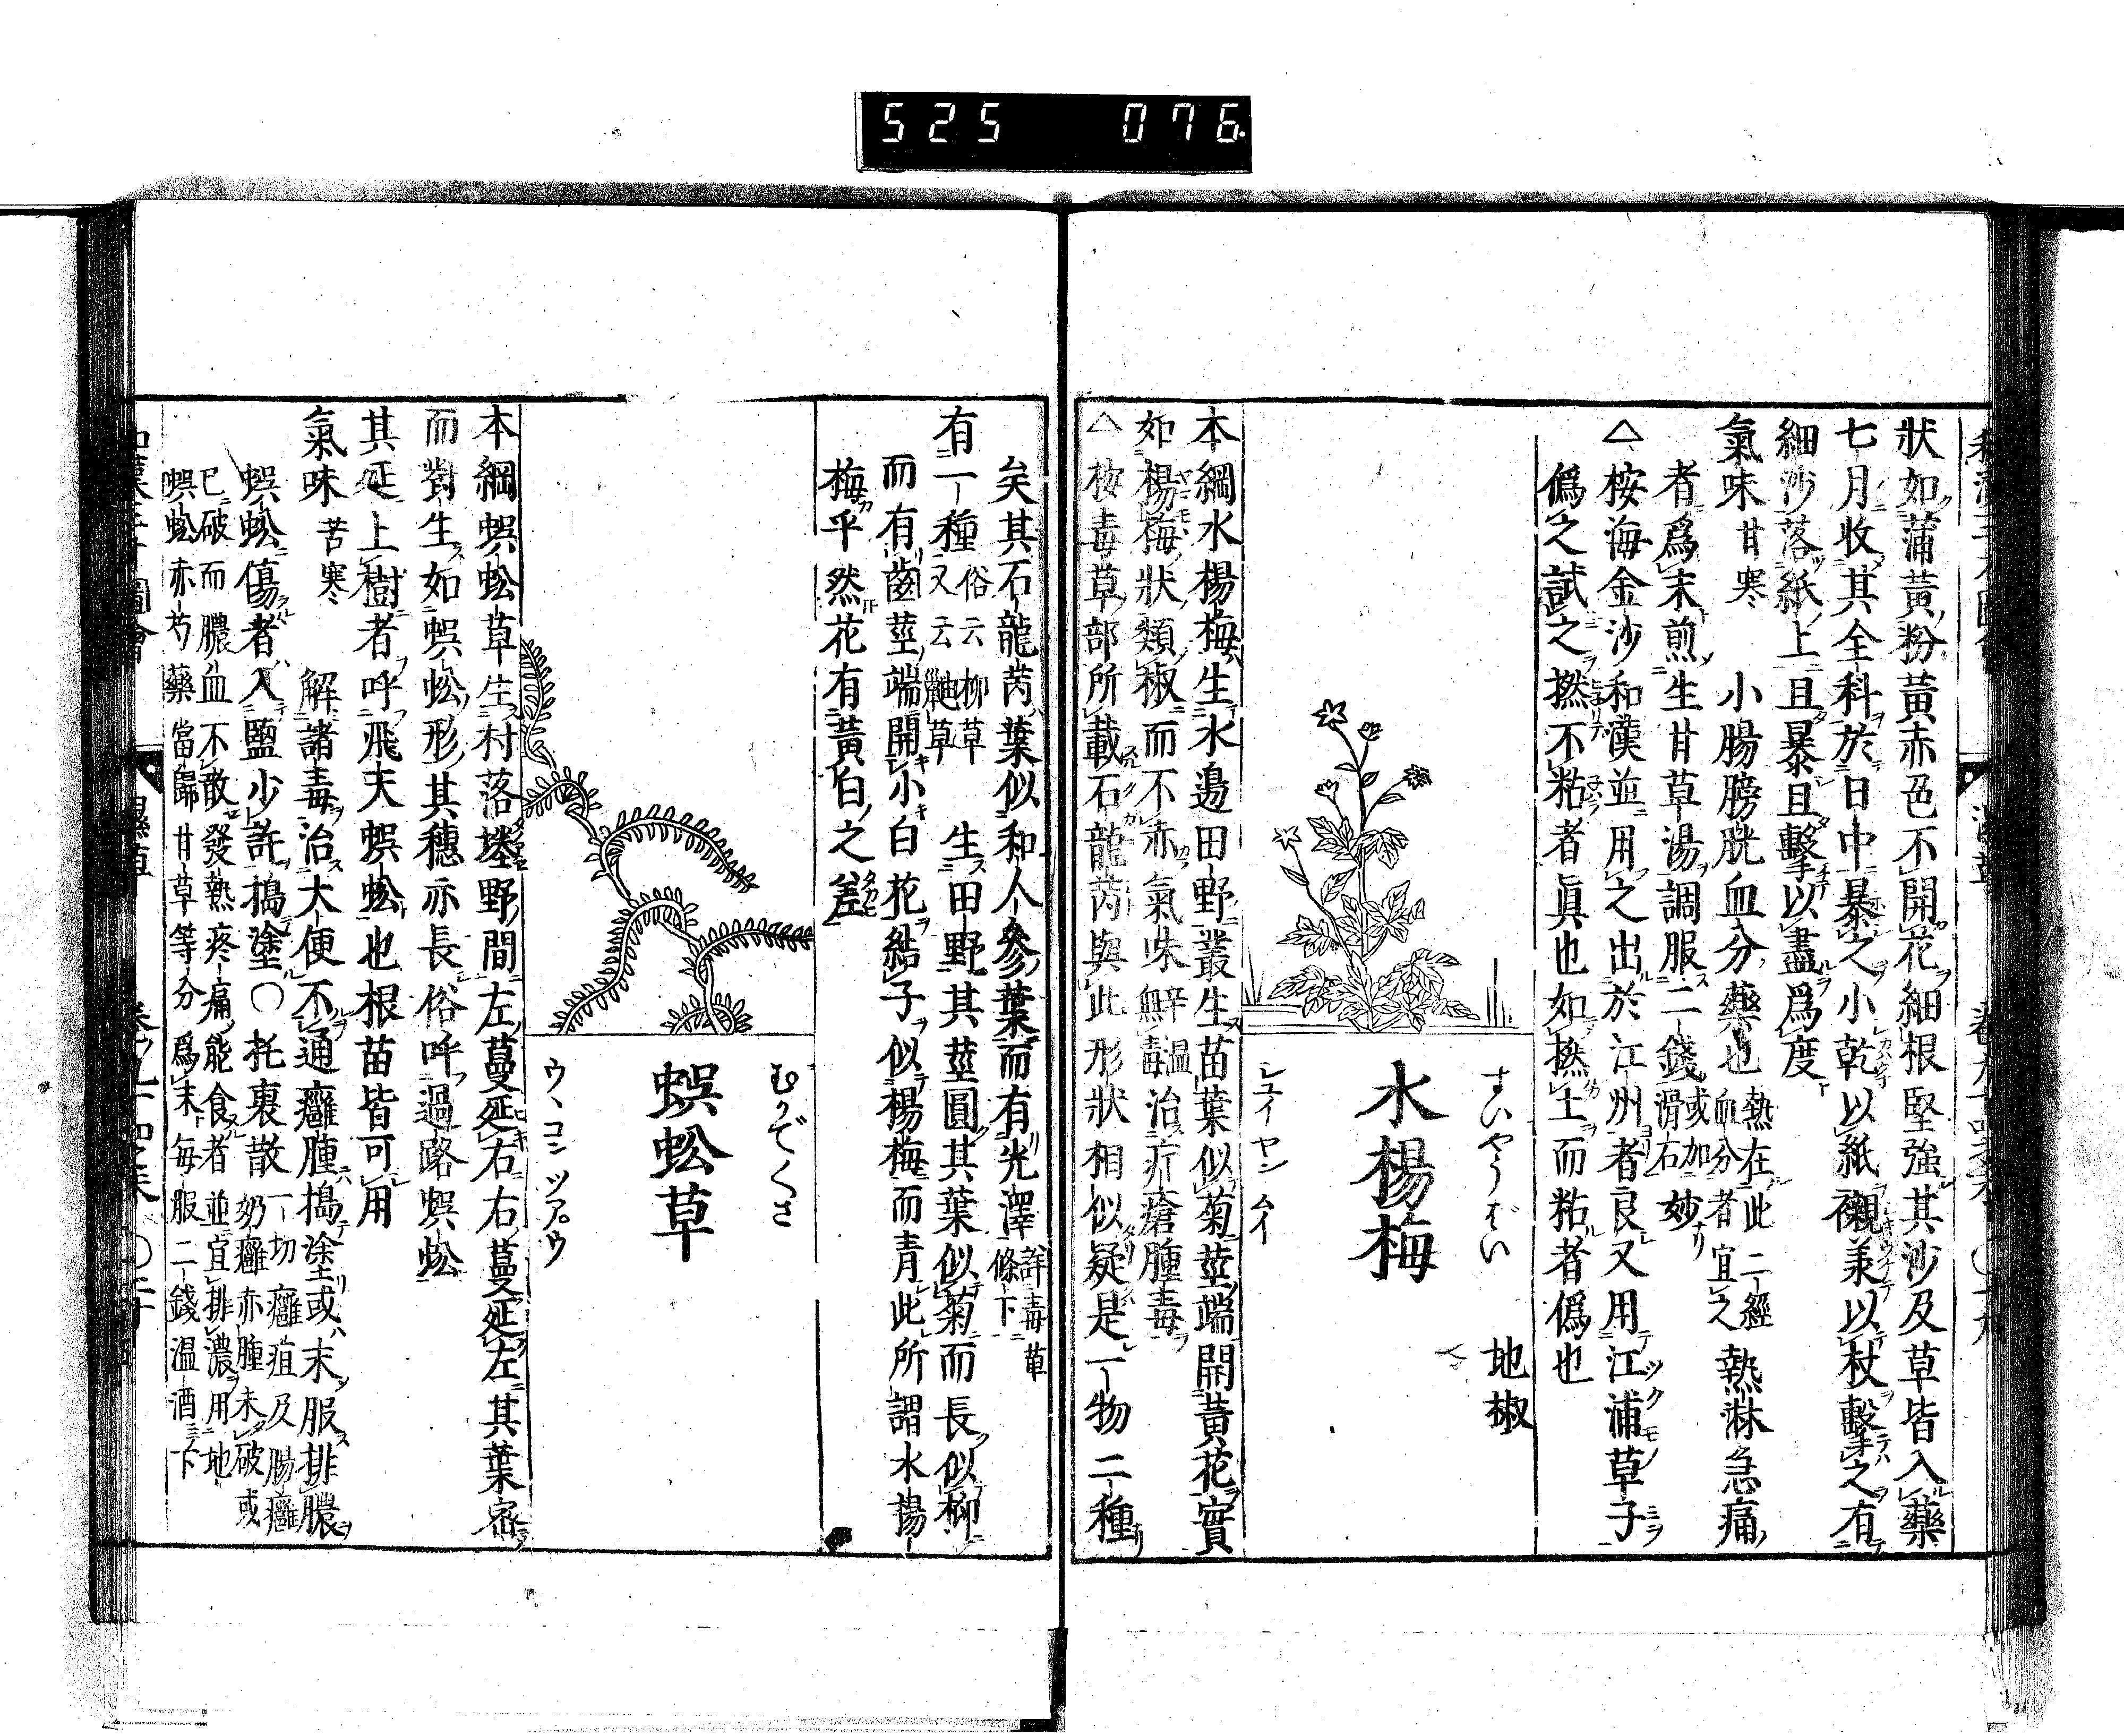 525 076.
狀如蒲黃粉黃赤色不開花細根堅強其沙及草皆入藥
七月收其全科於日中暴之小乾以紙襯羕以杖擊之有
細沙落紙上且暴且擊以盡爲度
氣味 甘寒 小腸膀胱血分藥也 熱在此二經血分者宜之 熱淋急痛
者爲末煎生甘草湯調服二錢 或加滑石 妙
△桉海金沙和漢並用之出於江州者良又用江浦草子
僞之試之撚不粘者眞也如撚土而粘者僞也
すいやうばい
地椒
水楊梅
シユイヤンムイ
本綱水楊梅生水邊田野叢生苗葉似菊莖端開黃花實
如楊梅狀類椒而不赤氣味辛溫治疔瘡腫毒
△桉毒草部所載石龍芮與此形狀相似疑是一物二種
矣其石龍芮葉似和人參葉而有光澤 詳毒草條下
有一種 俗云柳草又云草 生田野其莖圓其葉似菊而長似柳
而有齒莖端開小白花結子似楊梅而青此所謂水楊
梅乎然花有黃白之差
むかでくさ
蜈蚣草
ウヽコンツアウ
本綱蜈蚣草生村落塍野間左蔓延右右蔓延左其葉密
而對生如蜈蚣形其穗亦長俗呼過路蜈蚣
其延上樹者呼飛天蜈蚣也根苗皆可用
氣味 苦寒 解諸毒治大便不通癰腫搗塗或末服排膿
蜈蚣傷者入鹽少許搗塗○托裏散 一切癰疽及腸癰奶癰赤腫未破或
已破而膿血不散發熱疼痛能食者並宜排濃用地
蜈蚣赤芍藥當歸甘草等分爲末每服二錢溫酒下